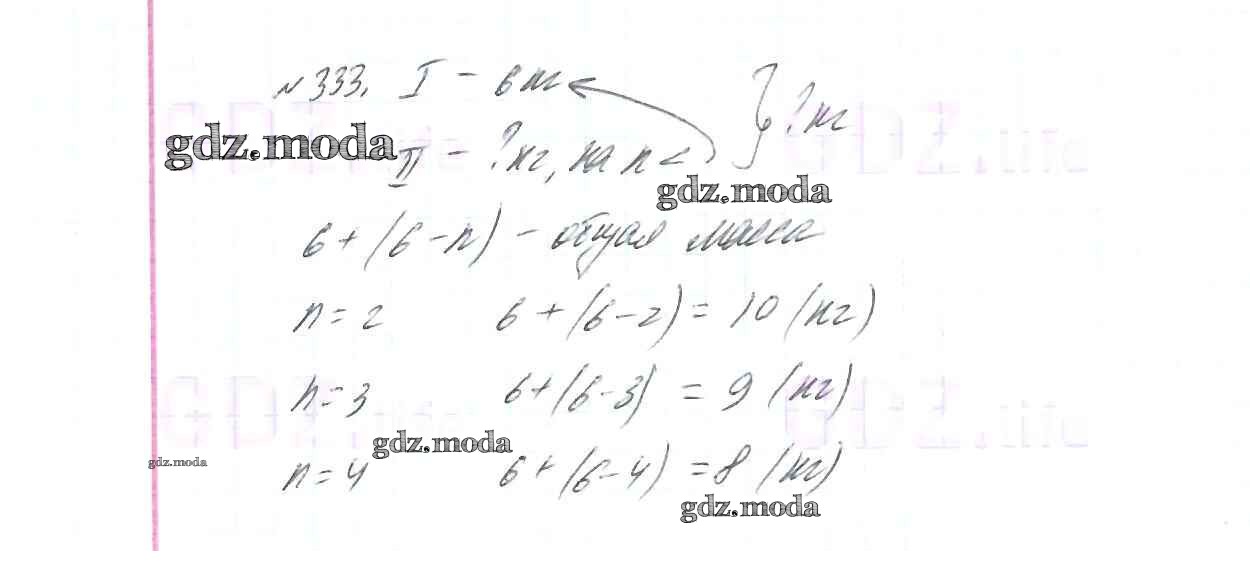 №333. I – 6 кг
} ? кг
II – ? кг, на n <
6 + (6 – n) – общая масса
n = 2 6 + (6 – 2) = 10 (кг)
n = 3 6 + (6 – 3) = 9 (кг)
n = 4 6 + (6 – 4) = 8 (кг)
GDZ.life
GDZ.life
GDZ.life
GDZ.life
gdz.moda
gdz.moda
gdz.moda
gdz.moda
gdz.moda